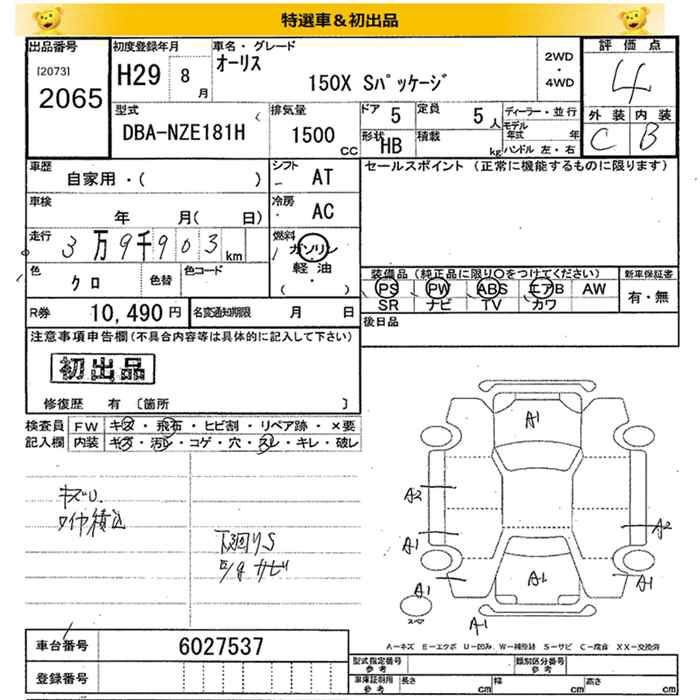 特選車＆初出品
出品番号
[2073]
2065
初度登録年月
H29 8月
車名・グレード
オーリス
150X Sパッケージ
2WD
・
4WD
評価点
4
外装 内装
C B
型式
DBA-NZE181H
排気量
1500 CC
ドア 5
定員 5人
形状 HB
積載 kg
ディーラー・並行
モデル年式 年
ハンドル 左・右
車歴
自家用・( )
シフト
AT
セールスポイント (正常に機能するものに限ります)
車検
年 月( 日)
冷房
AC
走行
3万9千903km
燃料
ガソリン
軽油
( ・ )
色
クロ
色替
色コード
装備品(純正品に限り○をつけてください)
新車保証書
PS PW ABS エアB AW
SR ナビ TV カワ
有・無
R券 10,490円
名変通知期限 月 日
後日品
注意事項申告欄(不具合内容等は具体的に記入して下さい)
初出品
修復歴 有 〔箇所 〕
検査員記入欄
FW キズ・飛石・ヒビ割・リペア跡・×要
内装 キズ・汚レ・コゲ・穴・スレ・キレ・破レ
キズU.
下廻りS
サビ
A1
A2
A1
A2
A1
A1
A1
A1
スペア
A－キズ E－エクボ U－凹み W－補修跡 S－サビ C－腐食 XX－交換済
車台番号 6027537
登録番号
型式指定番号 参考
類別区分番号 参考
車庫証明用 参考
長さ cm
幅 cm
高さ cm